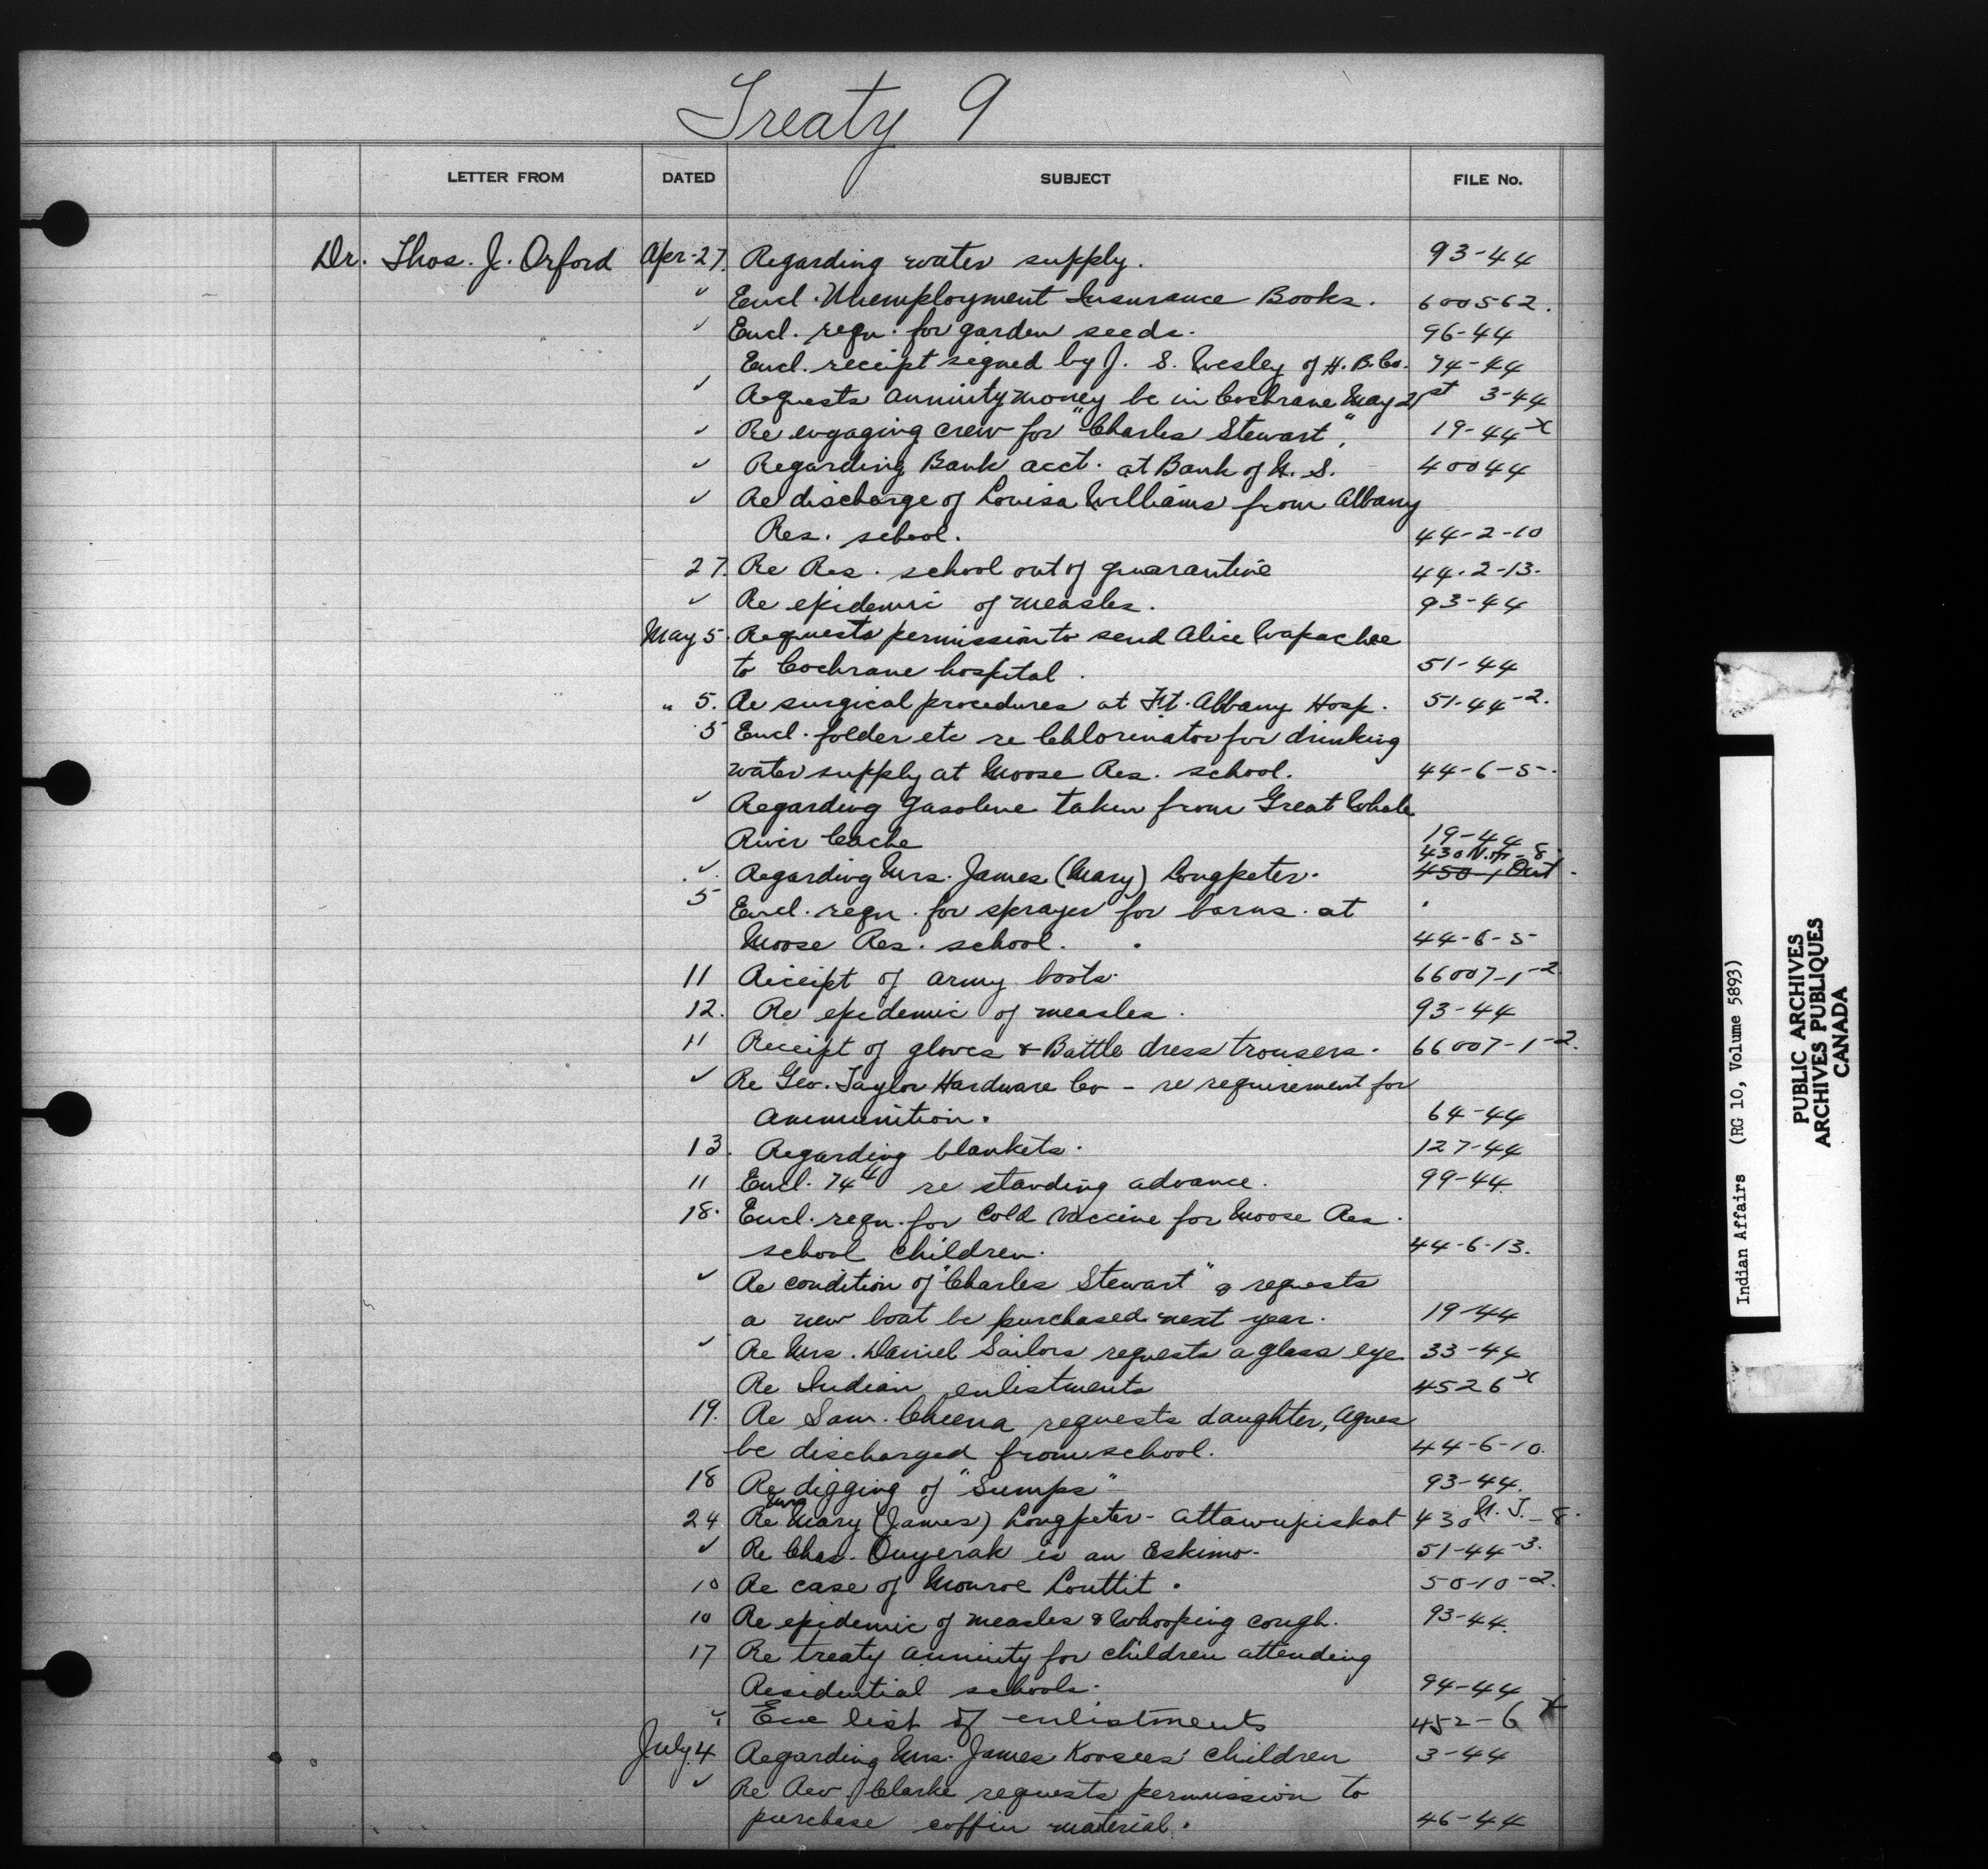 Treaty 9
LETTER FROM DATED SUBJECT FILE No.
Dr. Thos. J. Orford Apr. 27. Regarding water supply. 93-44
" Encl. Unemployment Insurance Books. 600562.
" Encl. reqn. for garden seeds. 96-44
Encl. receipt signed by J. S. Wesley of H. B. Co. 74-44
" Requests annuity money be in Cochrane May 21st 3-44
" Re engaging crew for "Charles Stewart". 19-44 x
" Regarding Bank acct. at Bank of N. S. 40044
" Re discharge of Louisa Williams from Albany
Res. school. 44-2-10
27. Re Res. school out of quarantine 44.2-13.
" Re epidemic of measles. 93-44
May 5. Requests permission to send Alice Wapachee
to Cochrane hospital. 51-44
" 5. Re surgical procedures at Ft. Albany Hosp. 51-44-2.
5 Encl. folder etc re Chlorinator for drinking
water supply at Moose Res. school. 44-6-5-.
" Regarding gasoline taken from Great Whale
River Cache 19-44
430 -8
" Regarding Mrs. James (Mary) Longpeter. 450-1 Ont.
5 Encl. reqn. for sprayer for barns at
Moose Res. school. 44-6-5
11 Receipt of army boots. 66007-1-2.
12. Re epidemic of measles. 93-44
11 Receipt of gloves & Battle dress trousers. 66007-1-2.
" Re Geo. Taylor Hardware Co - re requirement for
ammunition. 64-44
13. Regarding blankets. 127-44
11 Encl. re standing advance. 99-44.
18. Encl. reqn. for Cold Vaccine for Moose Res.
school children. 44-6-13.
" Re condition of "Charles Stewart" & requests
a new boat be purchased next year. 19-44
" Re Mrs. Daniel Sailors requests a glass eye 33-44
Re Indian enlistments 4526 x
19. Re Sam. Cheena requests daughter, Agnes
be discharged from school. 44-6-10.
18 Re digging of "Sumps" 93-44.
24 Re Mrs Mary (James) Longpeter - Attawapiskat 430 -8.
" Re Chas. Ouyerak is an Eskimo. 51-44-3.
10 Re case of Monroe Louttit. 50-10-2.
10 Re epidemic of measles & Whooping cough. 93-44.
17 Re treaty annuity for children attending
Residential schools. 94-44
" Enc list of enlistments 452-6 x
July 4 Regarding Mrs. James Koosees' children 3-44
" Re Rev. Clarke requests permission to
purchase coffin material. 46-44
Indian Affairs (RG 10, Volume 5893)
PUBLIC ARCHIVES
ARCHIVES PUBLIQUES
CANADA